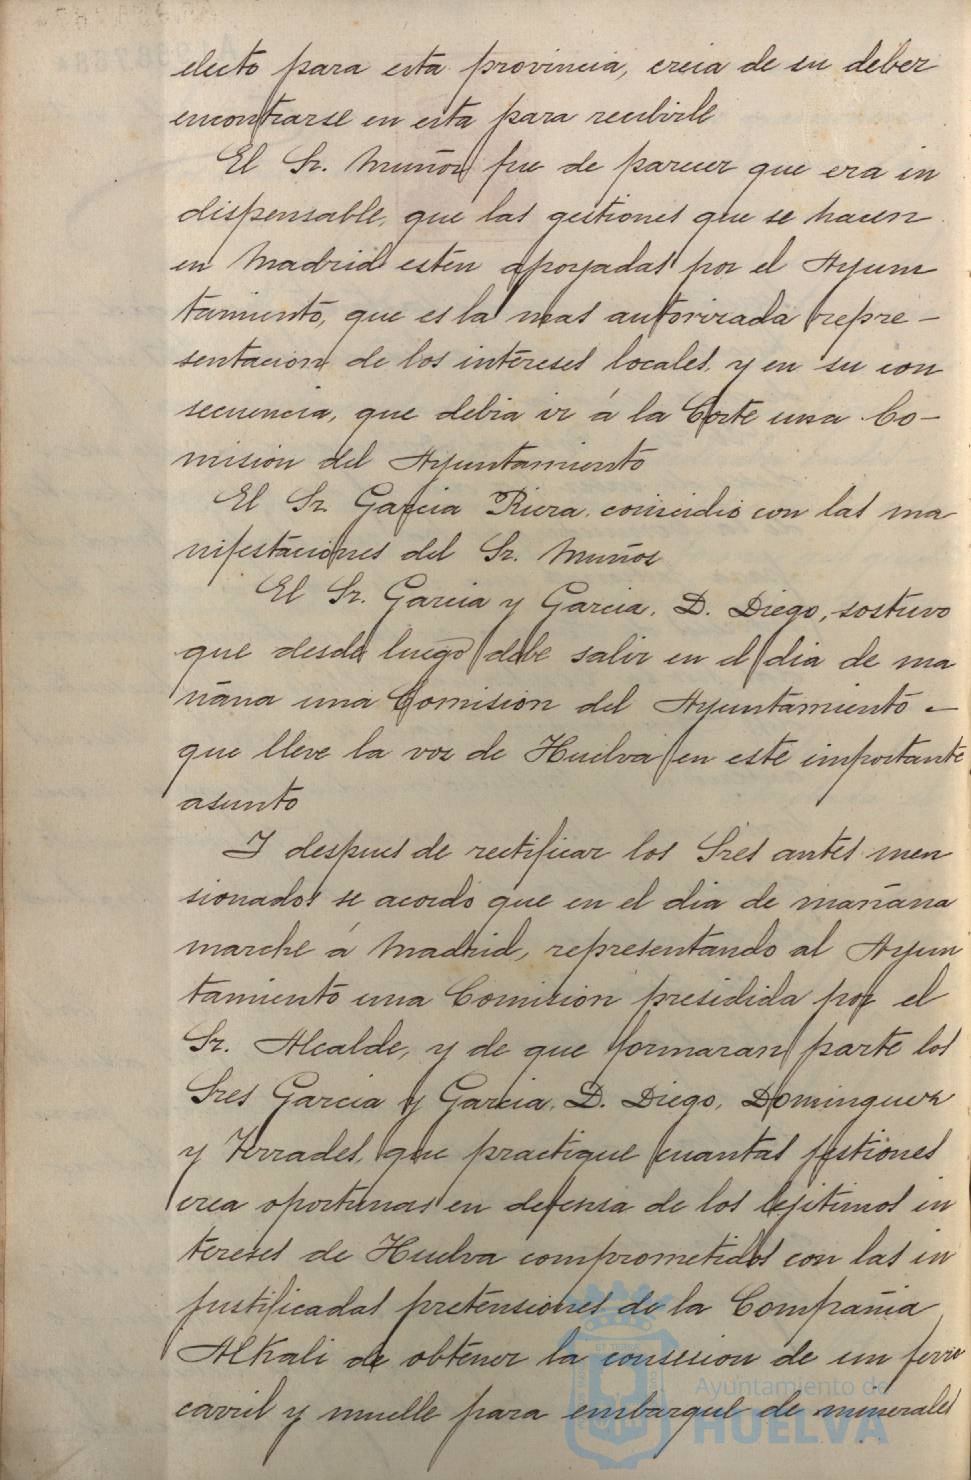 electo para esta provincia, creia de su deber
encontrarse en esta para recibirle
El Sr. Muñoz fue de parecer que era in
dispensable, que las gestiones que se hacen
en Madrid esten apoyadas por el Ayun
tamiento, que es la mas autorizada repre-
sentacion de los intereses locales, y en su con
secuencia, que debia ir á la Corte una Co-
mision del Ayuntamiento
El Sr. Garcia Riera, coincidio con las ma
nifestaciones del Sr. Muñoz
El Sr. Garcia y Garcia, D. Diego, sostuvo
que desde luego debe salir en el dia de ma
ñana una Comision del Ayuntamiento -
que lleve la voz de Huelva en este importante
asunto
Y despues de rectificar los Sres antes men
sionados se acordo que en el dia de mañana
marche á Madrid, representando al Ayun
tamiento una Comision presidida por el
Sr. Alcalde, y de que formaran parte los
Sres Garcia y Garcia, D. Diego, Dominguez
y Terrades, que practique cuantas jestiones
crea oportunas en defensa de los lejitimos in
tereses de Huelva comprometidos con las in
justificadas pretensiones de la Compañia
Alkali de obtener la consesion de un ferro
carril y muelle para embarque de minerales
Ayuntamiento de
HUELVA